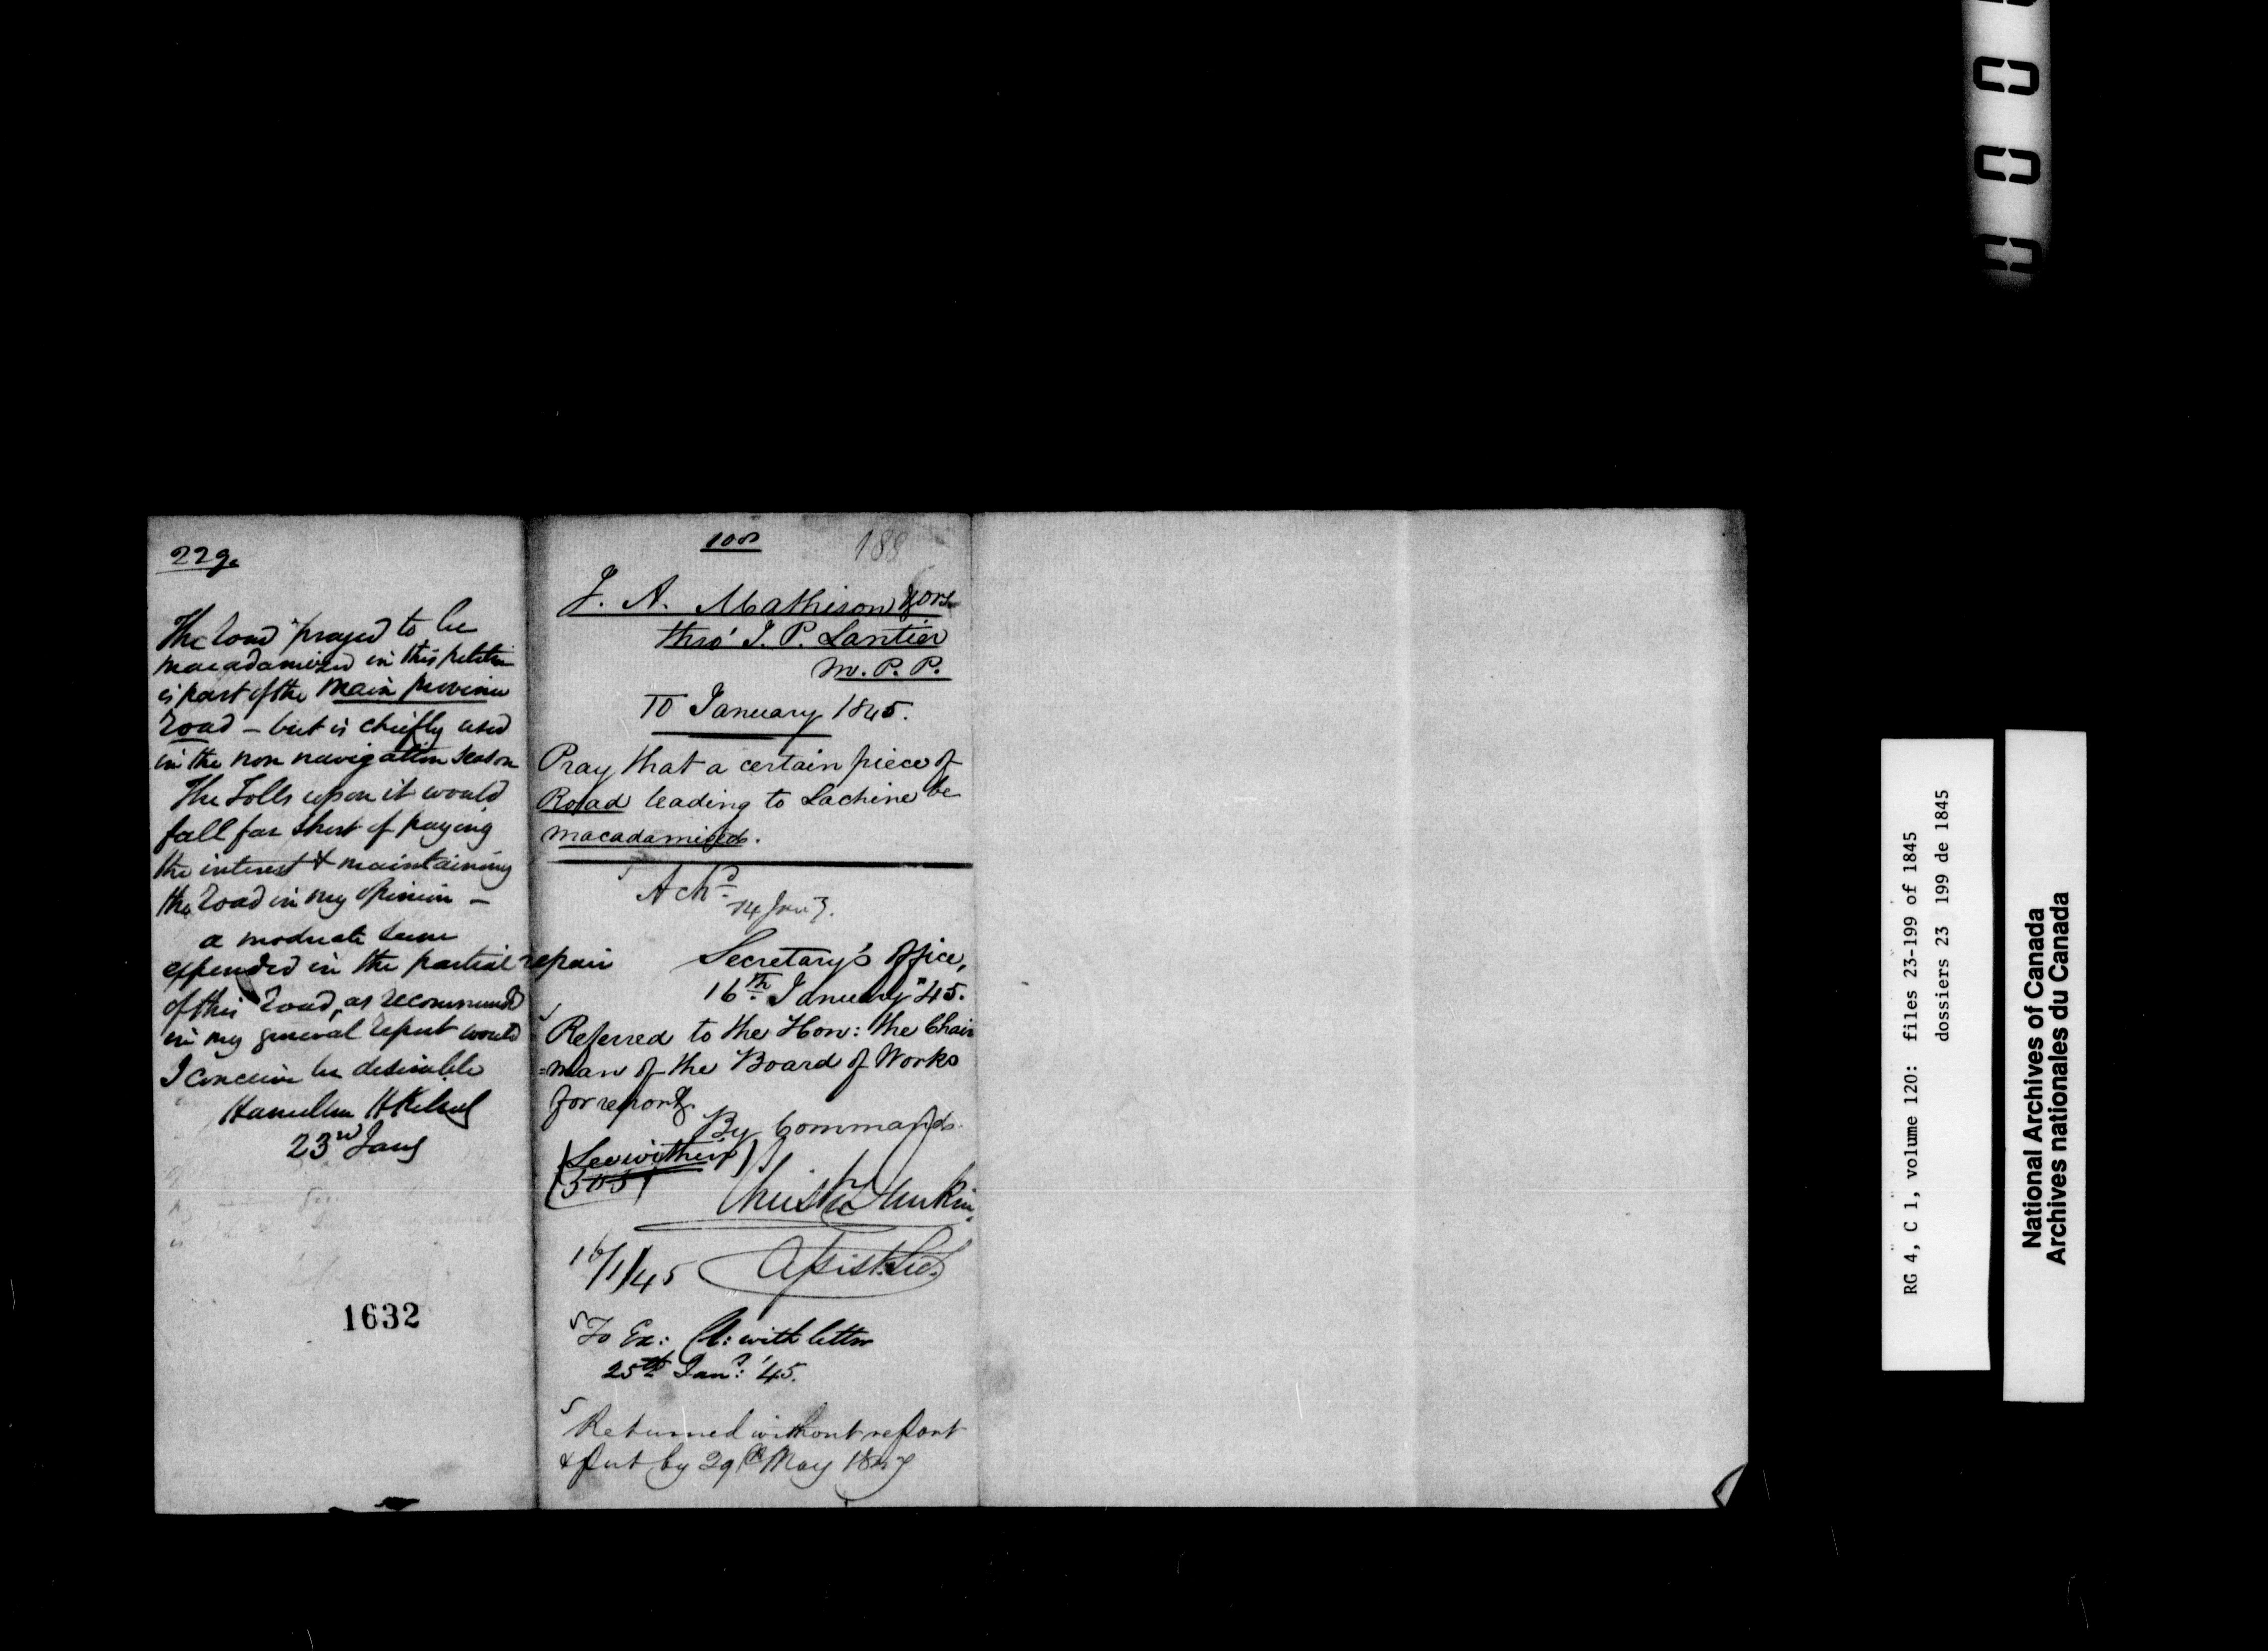 229.
The road prayed to be
macadamized in this petition
is part of the main province
road – but is chiefly used
in the non navigation season
The Tolls upon it would
fall far short of paying
the interest & maintaining
the road in my opinion –
a moderate sum
expended in the partial repair
of this road, as recommended
in my general report would
I conceive be desirable
Hamilton H Killaly
23rd Jany
1632
108
188
J. A. Mathison & ors
thro' J. P. Lantier
M. P. P.
10 January 1845.
Pray that a certain piece of
Road leading to Lachine be
macadamized.
Ackd
14 Jany.
Secretary's Office,
16th January "45.
Referred to the Hon: the Chair
=man of the Board of Works
for report.
By Command.
(See within)
(505)
Christr Dunkin,
Assist. Sec.
16/1/45
To Ex: Cl: with letter
25th Jany: '45.
Returned without report
& put by 29th May 1847
RG 4, C 1, volume 120: files 23-199 of 1845
dossiers 23 199 de 1845
National Archives of Canada
Archives nationales du Canada